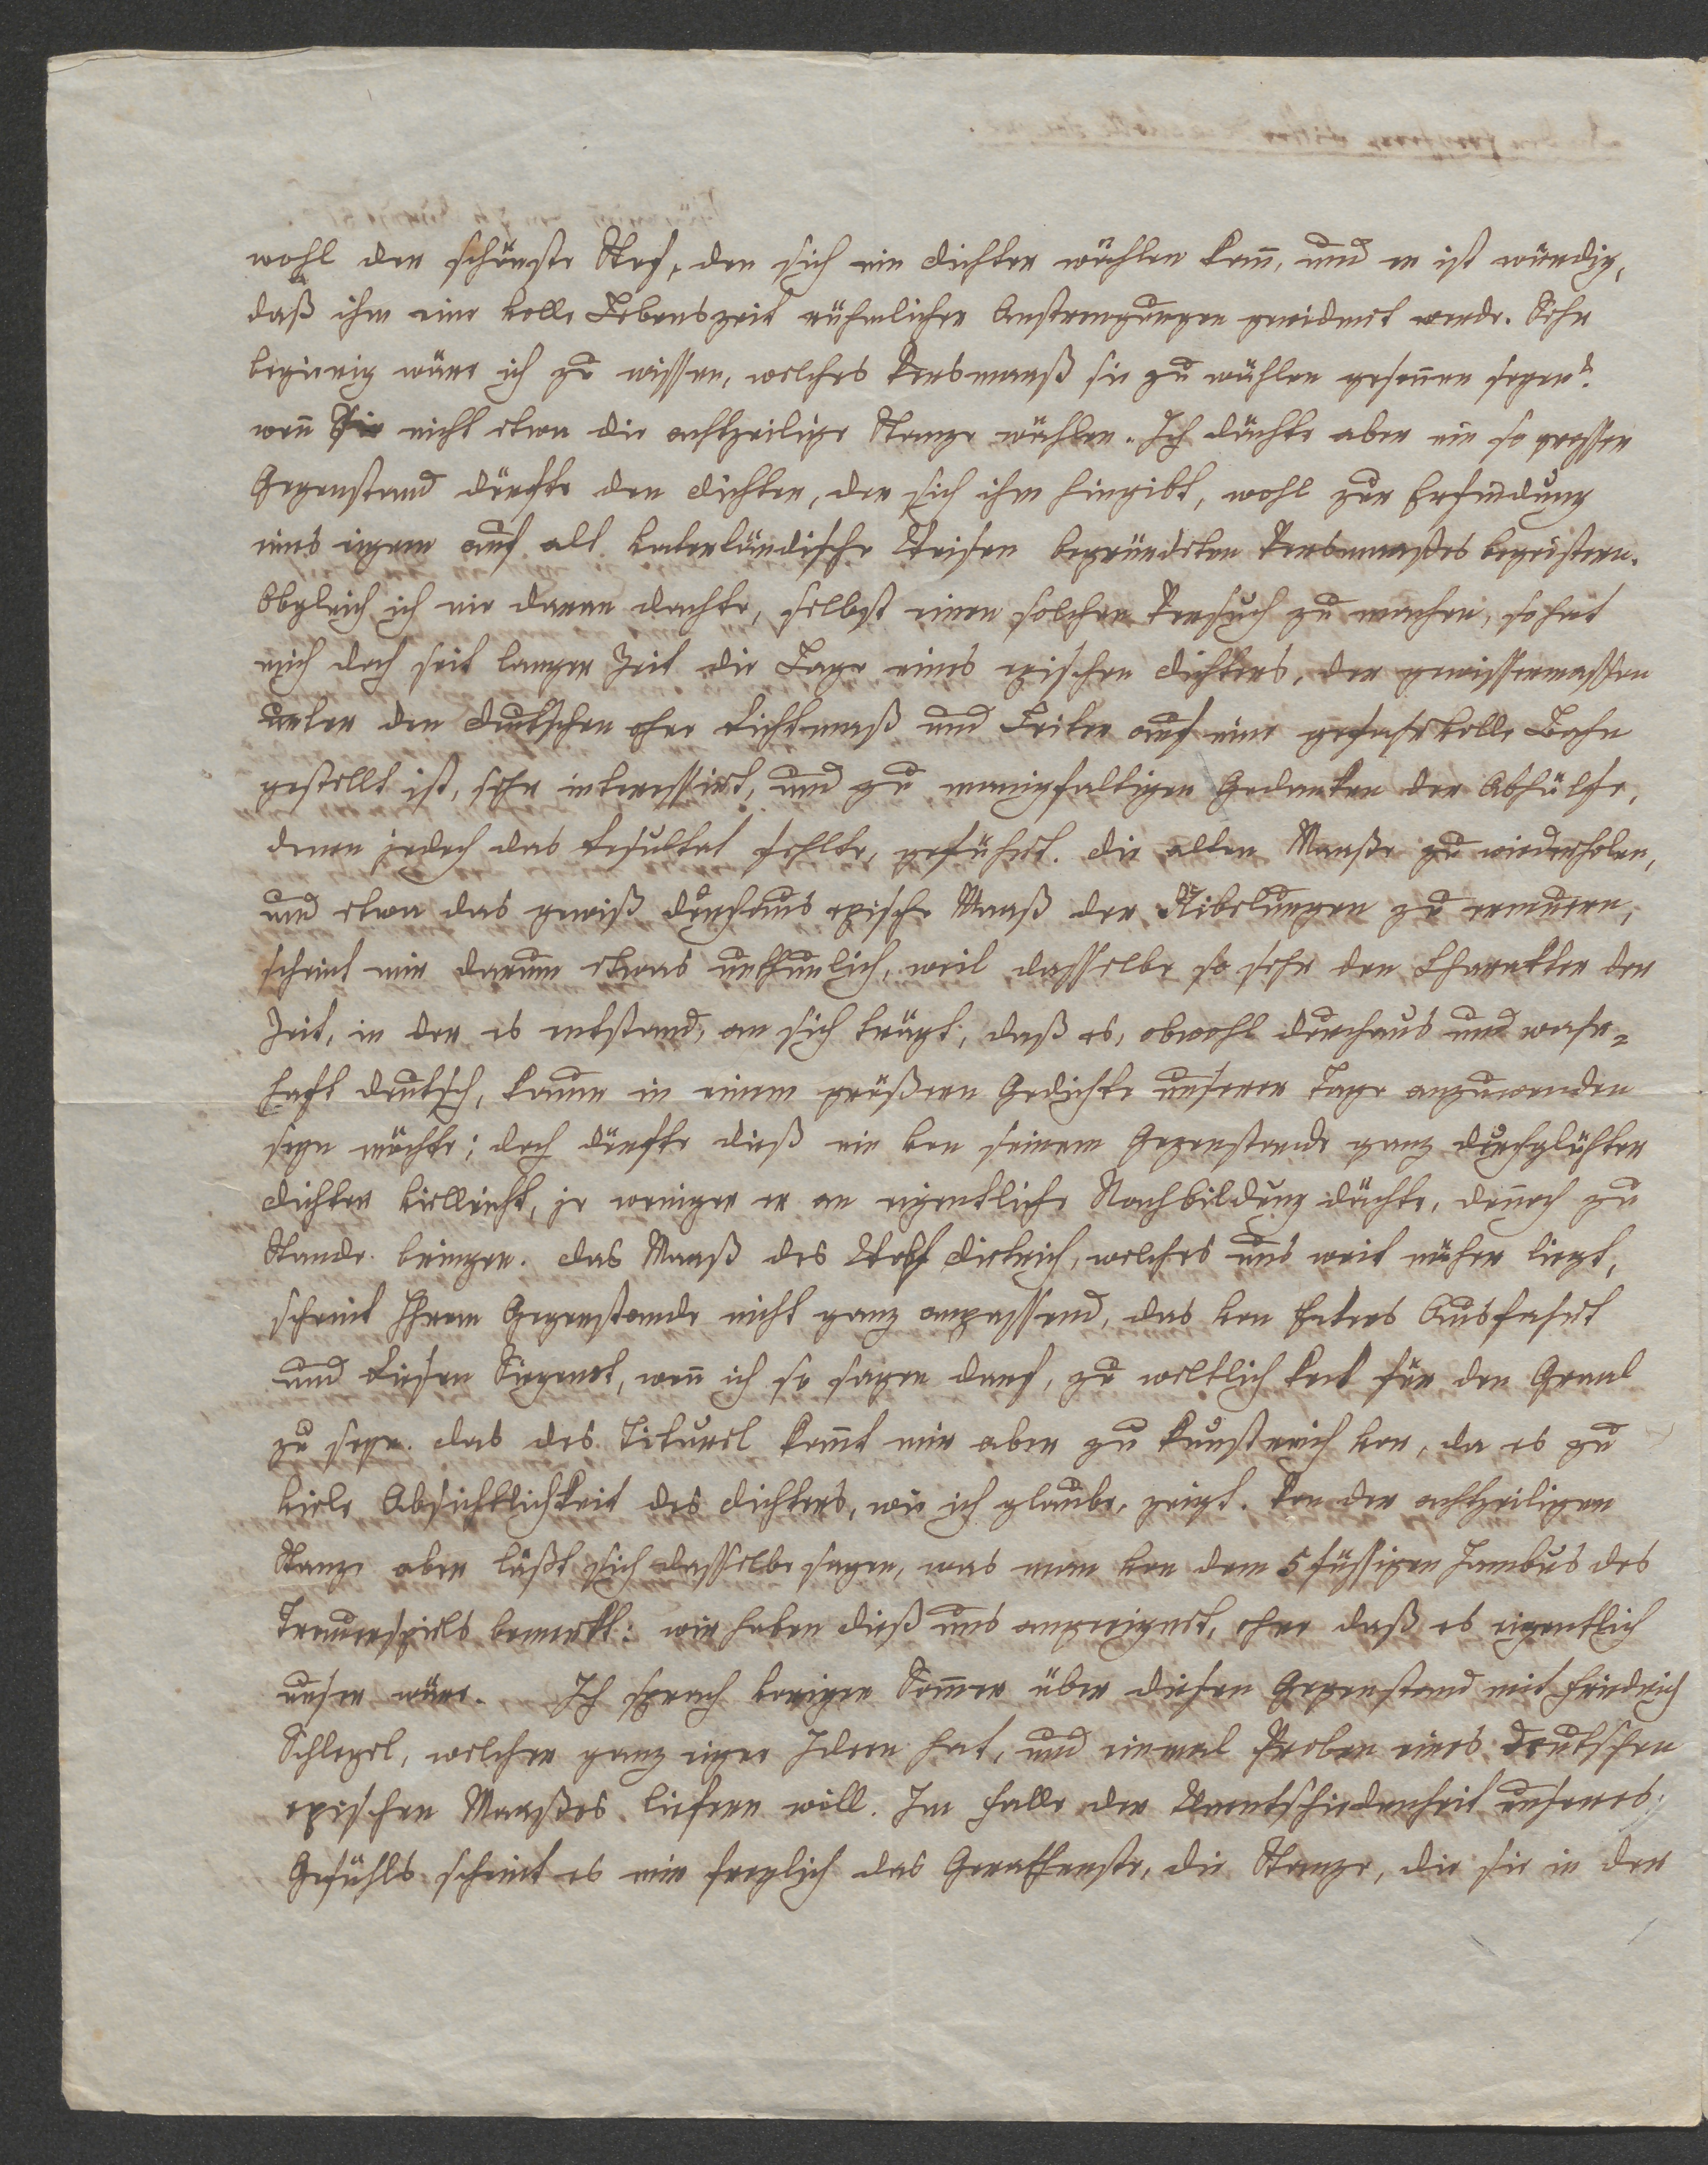 wohl der schönste Stof, den sich ein Dichter wählen kann, und er ist würdig,
daß ihm eine volle Lebenszeit rühmlicher Anstrengungen gewidmet werde. Sehr
begierig wäre ich zu wissen, welches Versmaaß sie zu wählen gesonnen seyen?
wenn Sie nicht etwa die achtzeilige Stanze wählen. Ich dächte aber ein so grosser
Gegenstand dürfte den Dichter, der sich ihm hingibt, wohl zur Erfindung
eines eigenen auf alt vaterländische Weisen begründeten Versmaaßes begeistern.
Obgleich ich nie daran dachte, selbst einen solchen Versuch zu machen, so hat
mich doch seit langer Zeit die Lage eines epischen Dichters, der gewissermassen
unter den Deutschen ohne Richtmaß und Leiter auf eine gefahrvolle Bahn
gestellt ist, sehr interessirt, und zu manigfaltigen Gedanken der Abhülfe,
denen jedoch das Resultat fehlte, geführt. Die alten Maaße zu wiederholen,
und etwa das gewiß durchaus epische Maaß der Nibelungen zu erneuern,
scheint mir darum etwas unthunlich, weil dasselbe so sehr den Charakter der
Zeit, in der es entstand, an sich trägt, daß es, obwohl durchaus und wahr-
haft deutsch, kaum in einem größern Gedichte unserer Tage anzuwenden
seyn möchte; doch dürfte dieß ein von seinem Gegenstande ganz durchglühter
Dichter vielleicht, je weniger er an eigentliche Nachbildung dächte, dennoch zu
Stande bringen. Das Maaß des Wolf Dietrich, welches uns weit näher liegt,
scheint Ihrem Gegenstande nicht ganz anpassend, das von Eckens Ausfahrt
und Riesen Siegenot, wenn ich so sagen darf, zu weltlich keck für den Graal
zu seyn. Das des Titurel kommt mir aber zu kunstreich vor, da es zu
viele Absichtlichkeit des Dichters, wie ich glaube, zeigt. Von der achtzeiligen
Stanze aber läßt sich dasselbe sagen, was man von dem 5 füssigen Jambus des
Trauerspiels bemerkt: wir haben dieß uns angeeignet, ohne daß es eigentlich
unser wäre. Ich sprach vorigen Sommer über diesen Gegenstand mit Friedrich
Schlegel, welcher ganz eigene Ideen hat, und einmal Proben eines deutschen
epischen Maaßes liefern will. Im Falle der Unentschiedenheit unseres
Gefühls scheint es mir freylich das Gerathenste, die Stanze, die sie in der